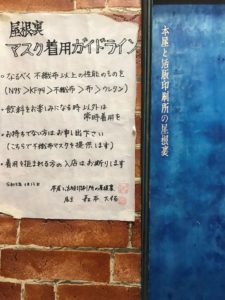 屋根裏
マスク着用ガイドライン
・なるべく不織布以上の性能のものを
(N95>KF94>不織布>布>ウレタン)
・飲料をお楽しみになる時以外は
常時着用を
・お持ちでない方はお申し出下さい
(こちらで不織布マスクを提供します)
・着用を拒まれる方の入店はお断りします
本屋と活版印刷所の屋根裏
店主
本屋と活版印刷所の屋根裏